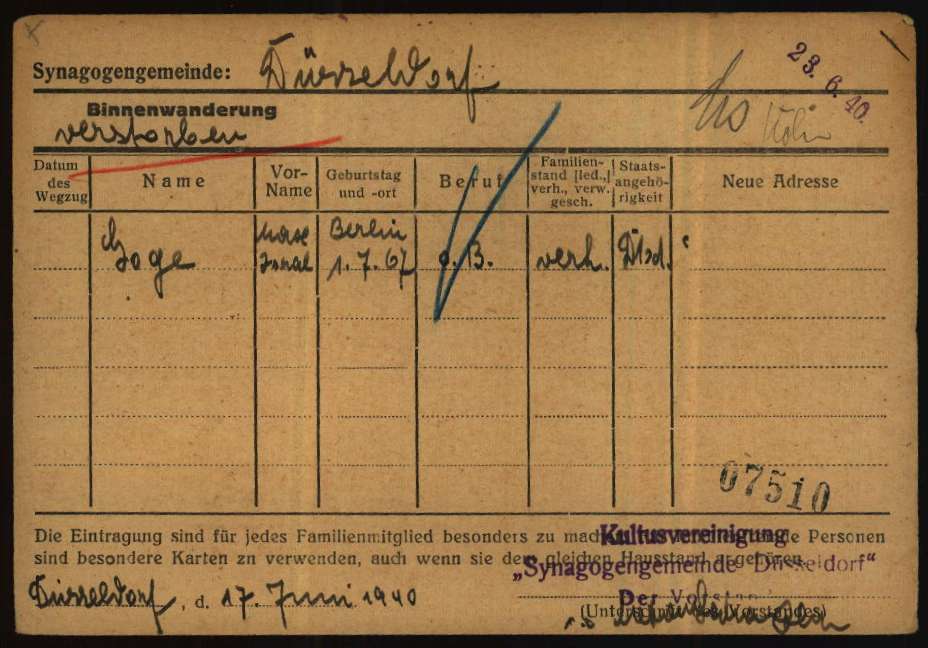 Synagogengemeinde: Düsseldorf
23. 6. 40.
Binnenwanderung
verstorben
Köln
Datum des Wegzug
Name
Vor-Name
Geburtstag und -ort
Beruf
Familien-stand [led., verh., verw. gesch.
Staats-angehö-rigkeit
Neue Adresse
Israel
Berlin
1. 7. 67
o. B.
verh.
Dtsd.
07510
Die Eintragung sind für jedes Familienmitglied besonders zu Personen
sind besondere Karten zu verwenden, auch wenn sie dem gleichen Hausstand angehören.
Kultusvereinigung
„Synagogengemeinde Düsseldorf“
Der Vorstand
Düsseldorf, d. 17. Juni 1940
(Unterschrift des Vorstandes)